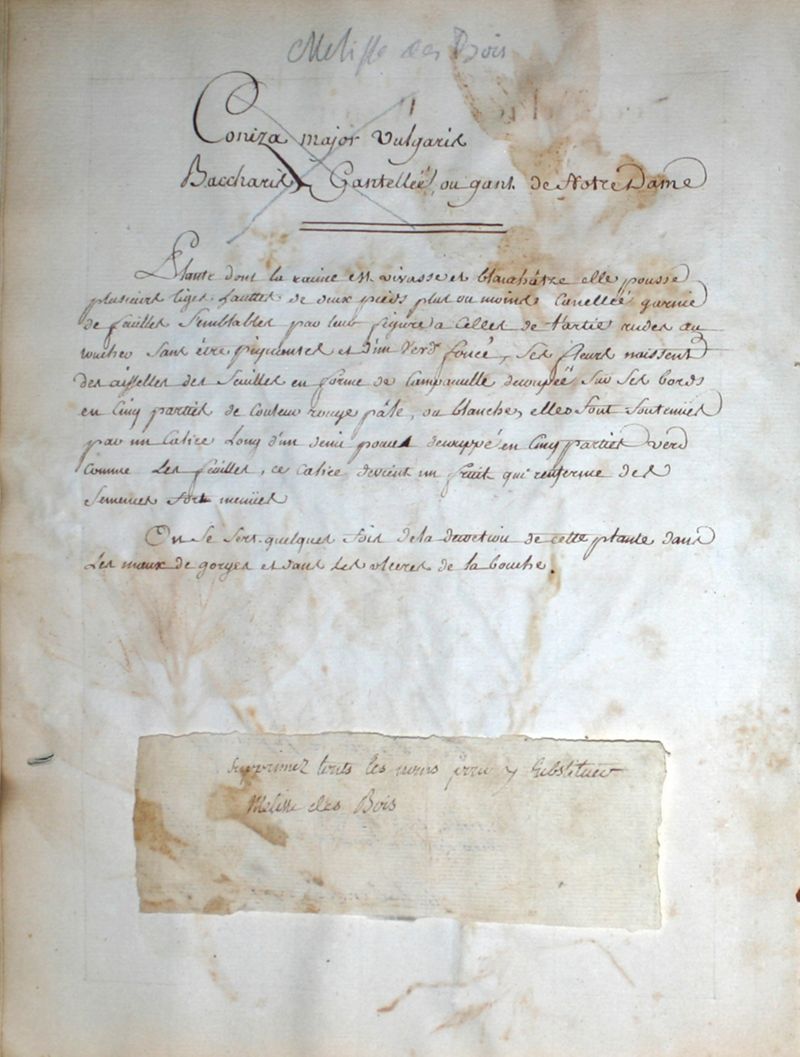 Melisse des Bois
Coniza major Vulgaris
Baccharis, Gantellée, ou gant de Notre Dame
Plante dont la racine est vivasse et blanchâtre elle pousse
plusieurs tiges hauttes de deux pieds plus ou moins Canelleé garnie
de feuilles Semblables par leur figure a Celles de l'artie rudes au
toucher Sans être piquentes et d'un Verd foncé, Ses fleurs naissent
des aisselles des feuilles en forme de Campanulle decoupeë Sur Ses bords
en Cinq parties de Couleur rouge pâle, ou blanche, elles Sont Soutenües
par un Calice Long d'un demi pouce decouppé en Cinq parties verd
comme Les feuilles, ce Calice devient un fruit qui renferme des
Semences fort menües
On Se Sert quelques fois de la decoction de cette plante dans
Les maux de gorges et dans Les ulceres de la bouche.
Supprimez touts les noms pour y Substituer
Melisse des Bois